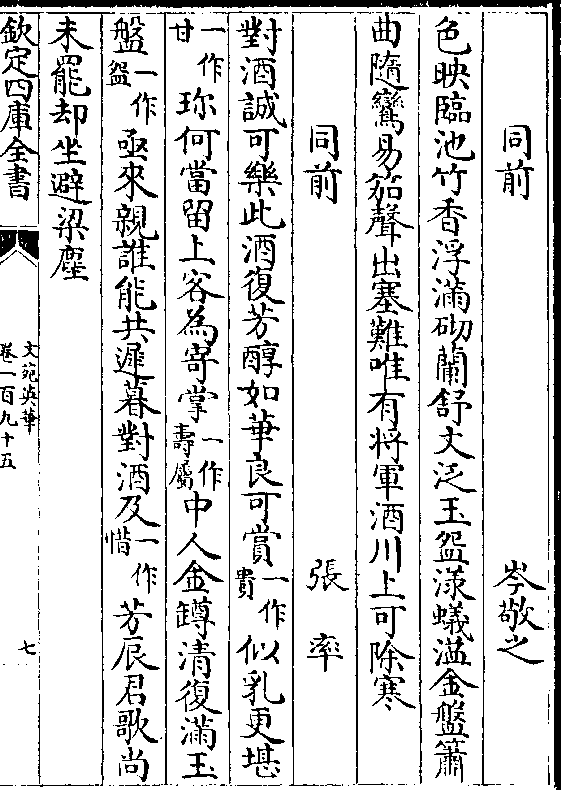 同前 岑敬之
色映臨池竹香浮滿砌蘭舒文泛玉盌漾蟻溢金盤簫
曲隨鸞易笳聲出塞難唯有将軍酒川上可除寒
同前 張率
對酒誠可樂此酒復芳醇如華良可賞一作貴似乳更堪
一作甘珎何當留上客為寄掌一作壽屬中人金罇清復滿玉
盤一作盌亟來親誰能共遲暮對酒及一作惜芳辰君歌尚
未罷却坐避梁塵
欽定四庫全書
文苑英華
卷一百九十五
七